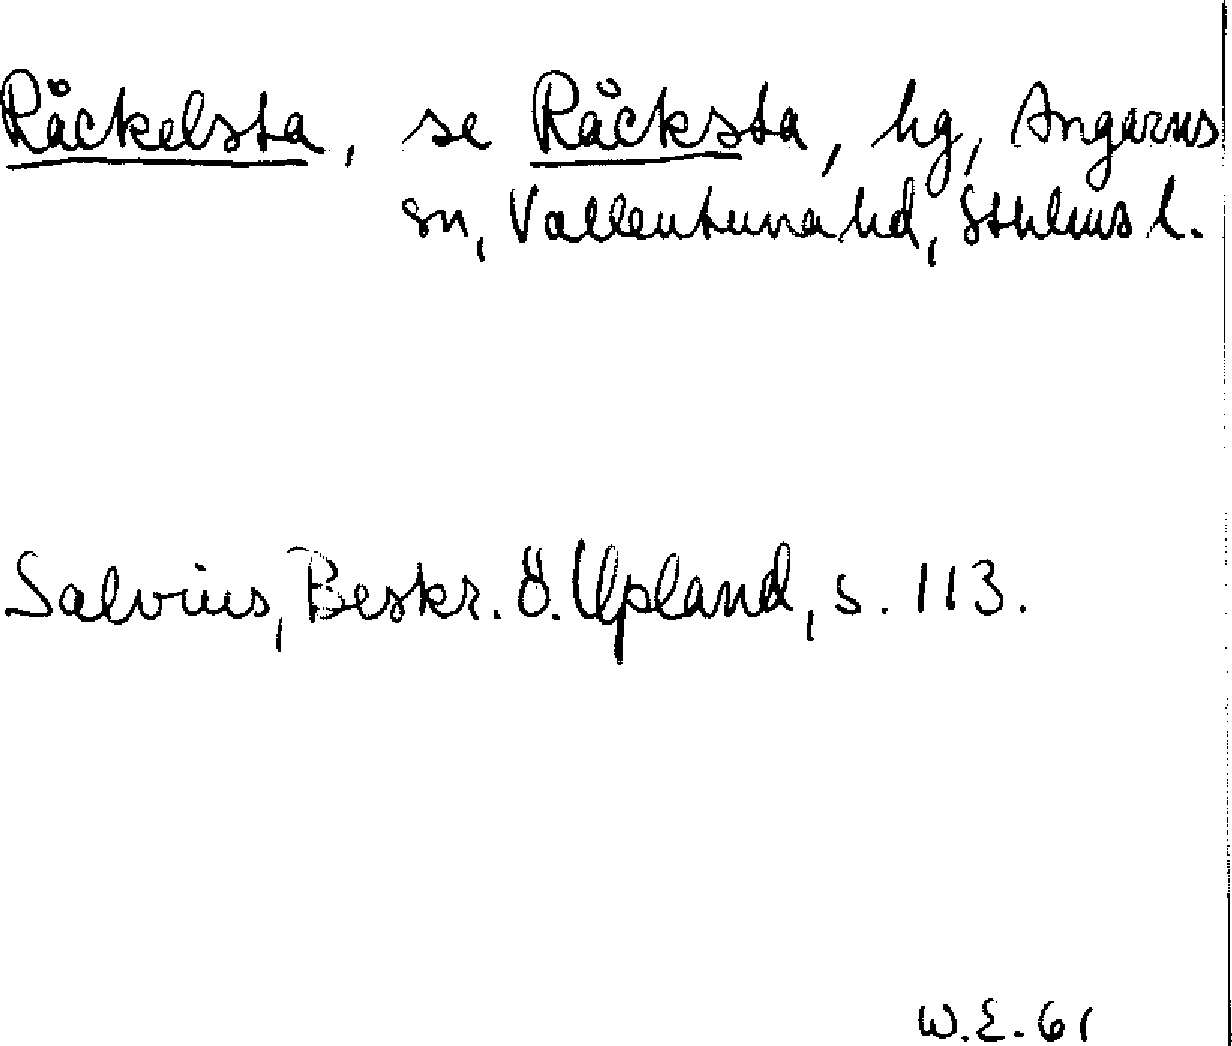 Råckelsta, se Råcksta, hg, Angarns
sn, Vallentuna hd, Sthlms l.
Salvius, Beskr. Ö. Upland, s. 113.
W.E. 61